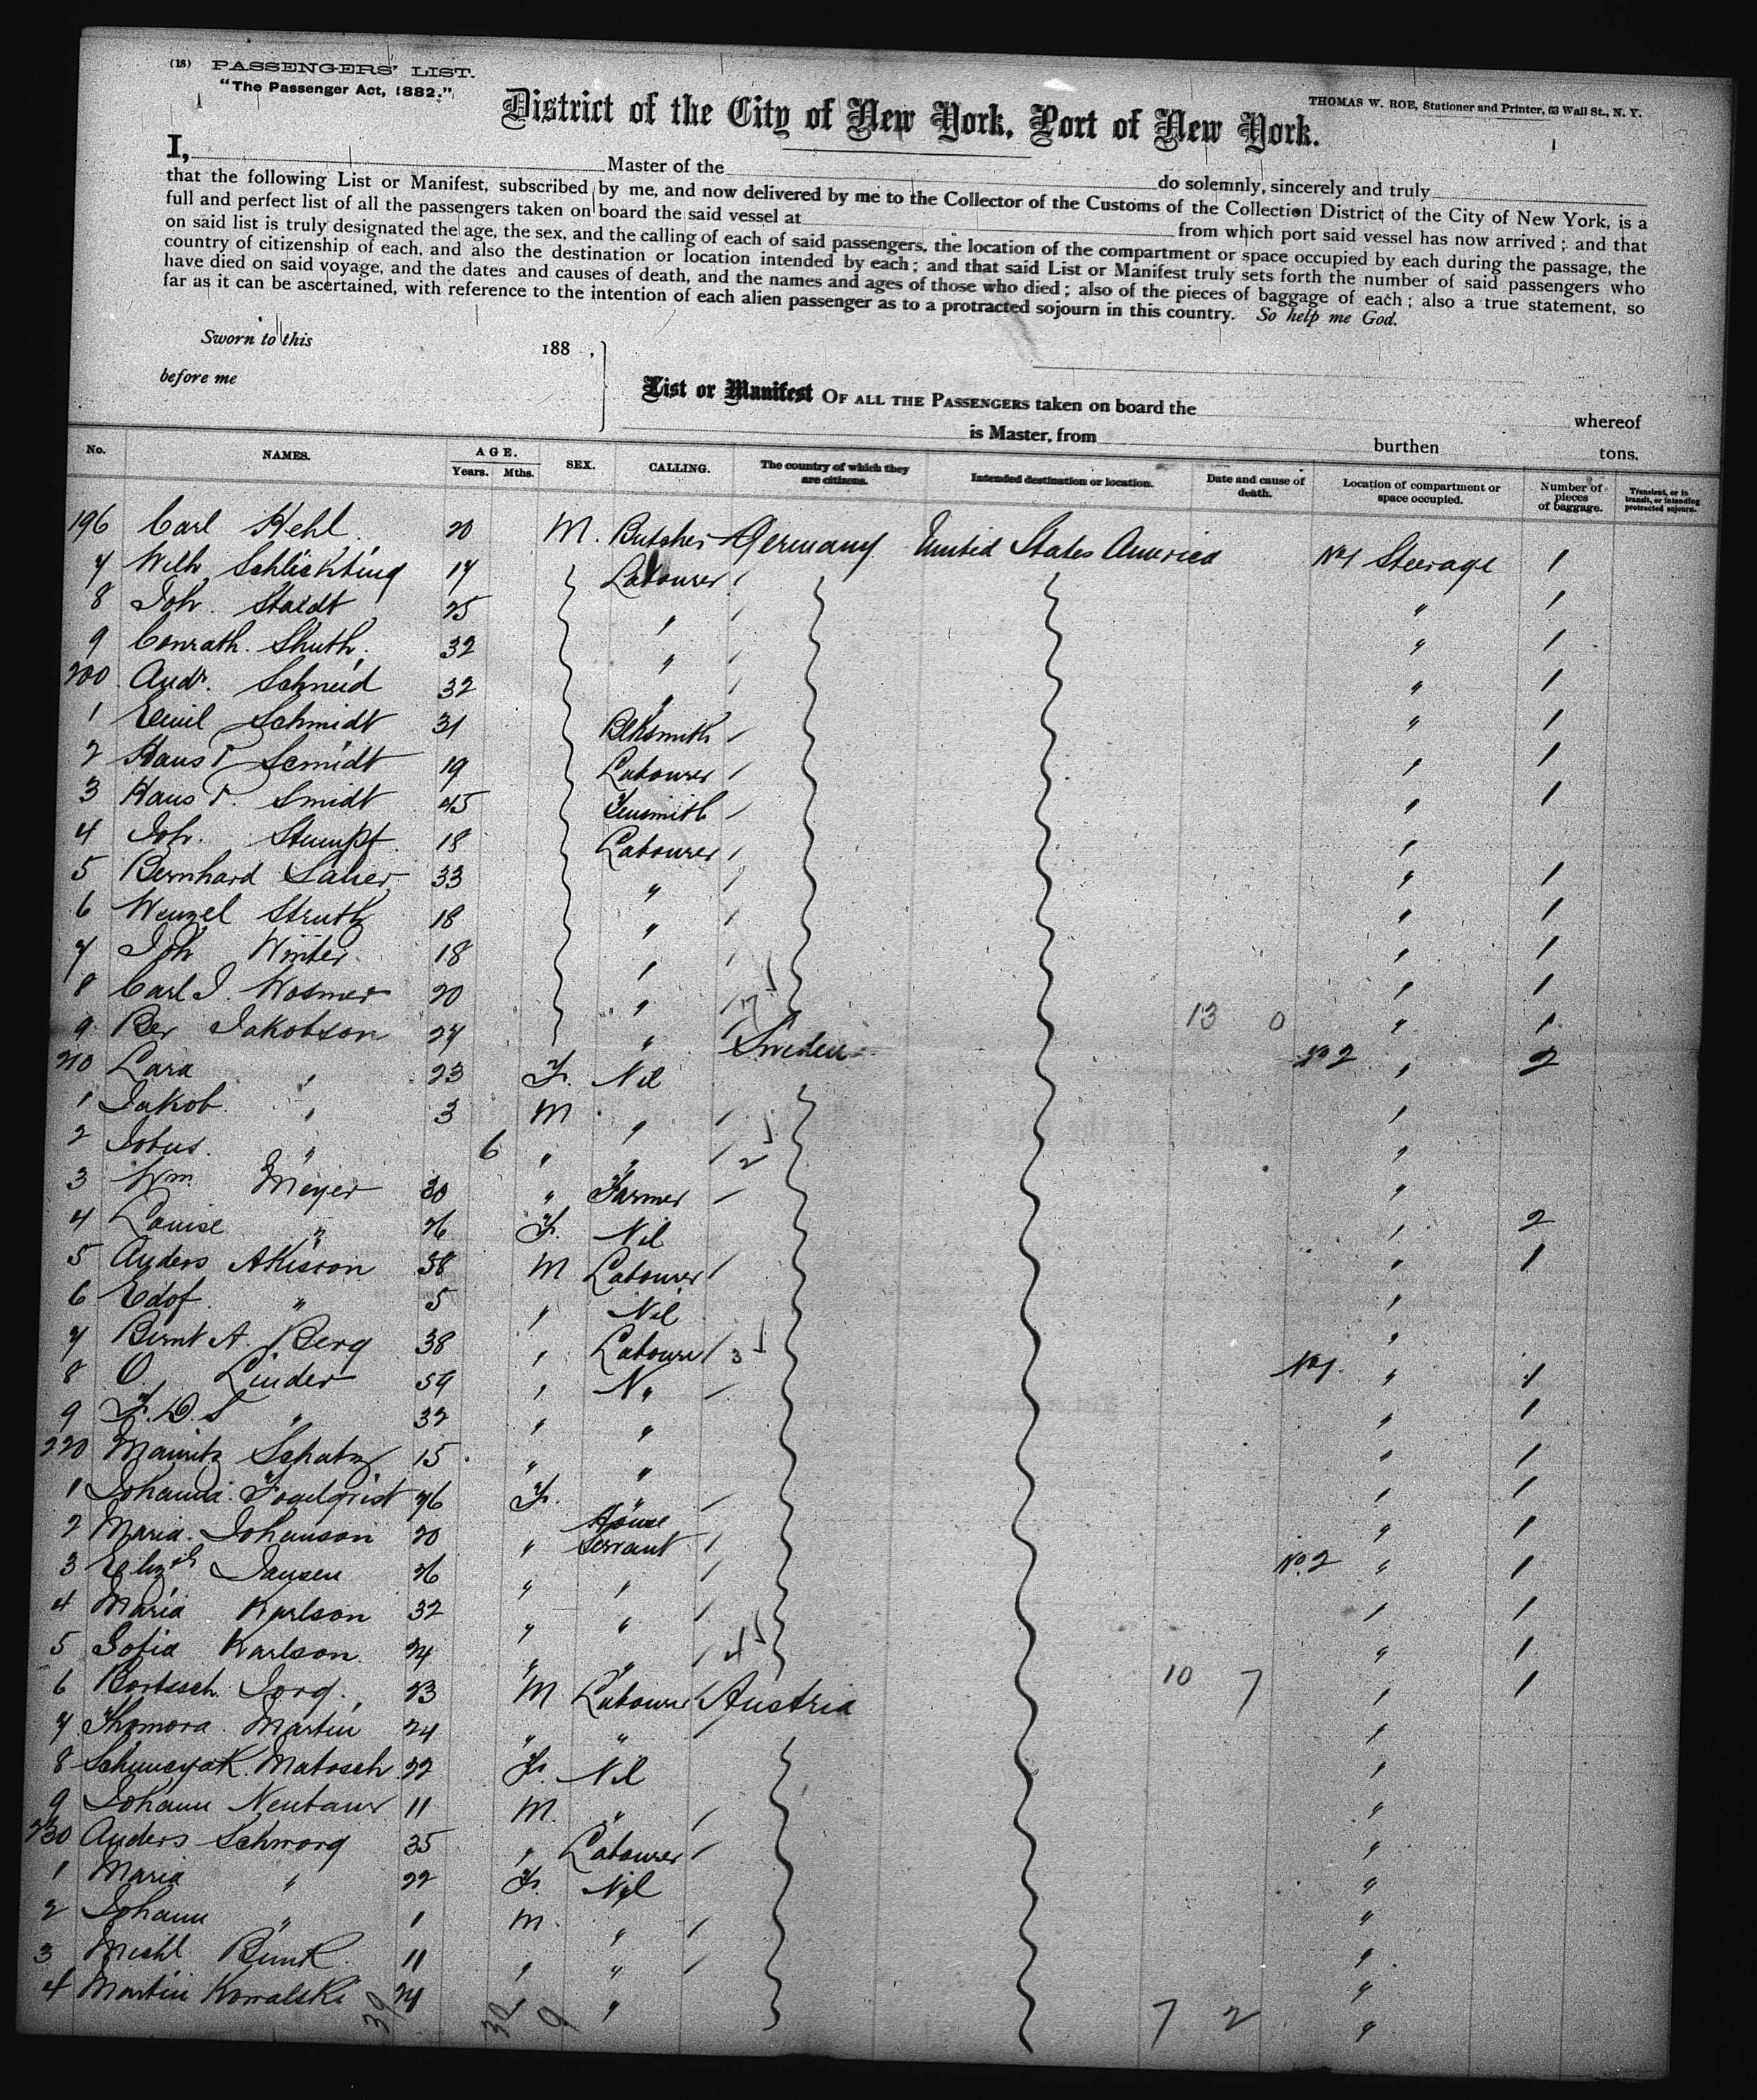 (18) PASSENGERS' LIST.
"The Passenger Act, 1882."
THOMAS W. ROE, Stationer and Printer, 63 Wall St., N. Y.
District of the City of New York, Port of New York.
I, Master of the do solemnly, sincerely and truly
that the following List or Manifest, subscribed by me, and now delivered by me to the Collector of the Customs of the Collection District of the City of New York, is a
full and perfect list of all the passengers taken on board the said vessel at from which port said vessel has now arrived; and that
on said list is truly designated the age, the sex, and the calling of each of said passengers, the location of the compartment or space occupied by each during the passage, the
country of citizenship of each, and also the destination or location intended by each; and that said List or Manifest truly sets forth the number of said passengers who
have died on said voyage, and the dates and causes of death, and the names and ages of those who died; also of the pieces of baggage of each; also a true statement, so
far as it can be ascertained, with reference to the intention of each alien passenger as to a protracted sojourn in this country. So help me God.
Sworn to this 188 ,
before me
List or Manifest OF ALL THE PASSENGERS taken on board the whereof
is Master, from burthen tons.
No. NAMES. AGE. Years. Mths. SEX. CALLING. The country of which they are citizens. Intended destination or location. Date and cause of death. Location of compartment or space occupied. Number of pieces of baggage. Transient, or in transit, or intending protracted sojourn.
196 Carl Kehl 20 M. Butcher Germany United States America No 1 Steerage 1
7 Wilh Schlichting 17 Labourer " 1
8 Joh. Staedt 25 " " 1
9 Conrath. 32 " " 1
200 Andr. Schneid 32 " " 1
1 Emil Schmidt 31 Blksmith " 1
2 Hans P Scmidt 19 Labourer " 1
3 Hans P. Smidt 45 Tinsmith "
4 Joh. Stumpf 18 Labourer " 1
5 Bernhard Sauer 33 " " 1
6 Wenzel Struth 18 " " 1
7 Joh Winter 18 " " 1
8 Carl J. Wosmer 20 " 17 13 0 " 1
9 Per Jakobson 27 " Sweden No 2 " 2
210 Lara " 23 F. Nil "
1 Jakob " 3 M " "
2 " 6 " " 2 "
3 Wm Meyer 30 " Farmer "
4 Louise " 26 F. Nil " 2
5 Anders 38 M Labourer " 1
6 Edof " 5 " Nil "
7 Bernt A. Berg 38 " Labourer 3 No 1. " 1
8 O. Linder 59 " N " " 1
9 F. O. S " 32 " " " 1
220 Mauritz Schatz 15 " " " 1
1 Johanna Fogelqvist 26 F. " " 1
2 Maria Johanson 20 " House Servant No. 2 " 1
3 Elizth Jansen 26 " " " 1
4 Maria Karlson 32 " " " 1
5 Sofia Karlson 24 " " 4 10 7 " 1
6 Jorg. 23 M Labourer Austria "
7 Martin 24 " " "
8 Matosch 22 F. Nil "
9 Johann Neubauer 11 M. " "
230 Anders Schworg 35 " Labourer "
1 Maria " 22 F. Nil "
2 Johann " 1 M. " "
3 Michl 11 " " "
4 Martin Kowalski 24 " " 7 2 "
39 30 9